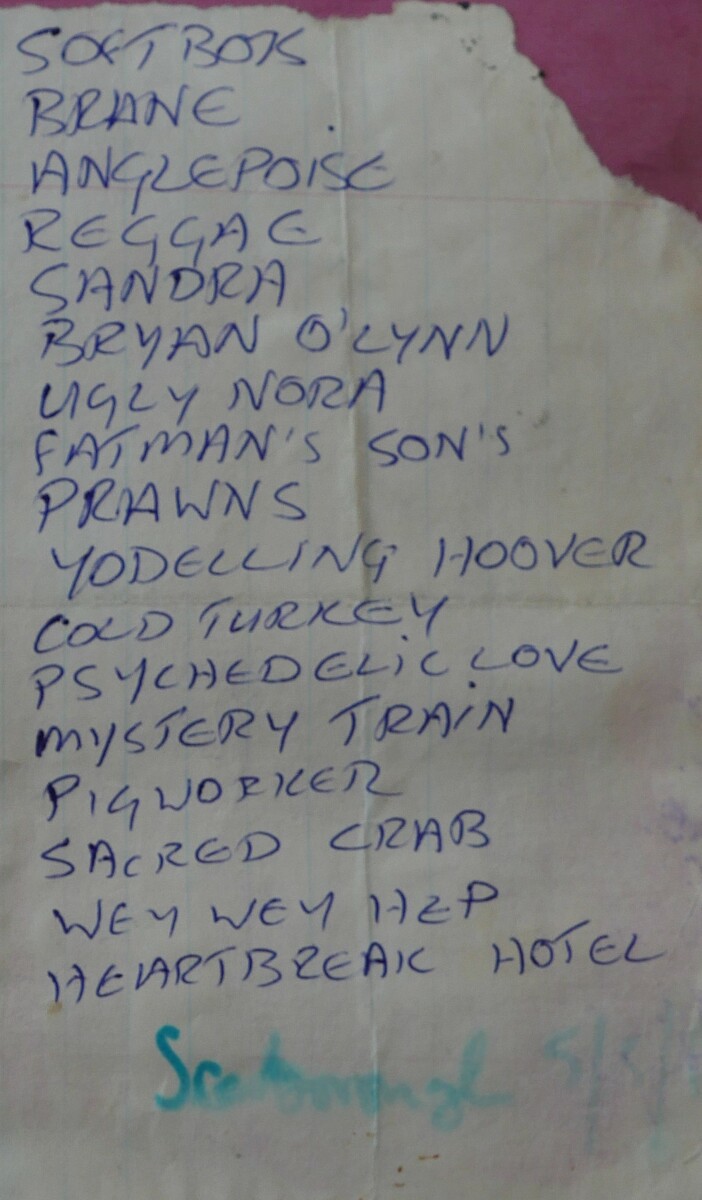 SOFTBOYS
BRANE
ANGLEPOISE
REGGAE
SANDRA
BRYAN O'LYNN
UGLY NORA
FATMAN'S SON'S
PRAWNS
YODELLING HOOVER
COLD TURKEY
PSYCHEDELiC LOVE
MYSTERY TRAiN
PIGWORKER
SACRED CRAB
WEY WEY HEP
HEARTBREAK HOTEL
Scarborough 5/5/